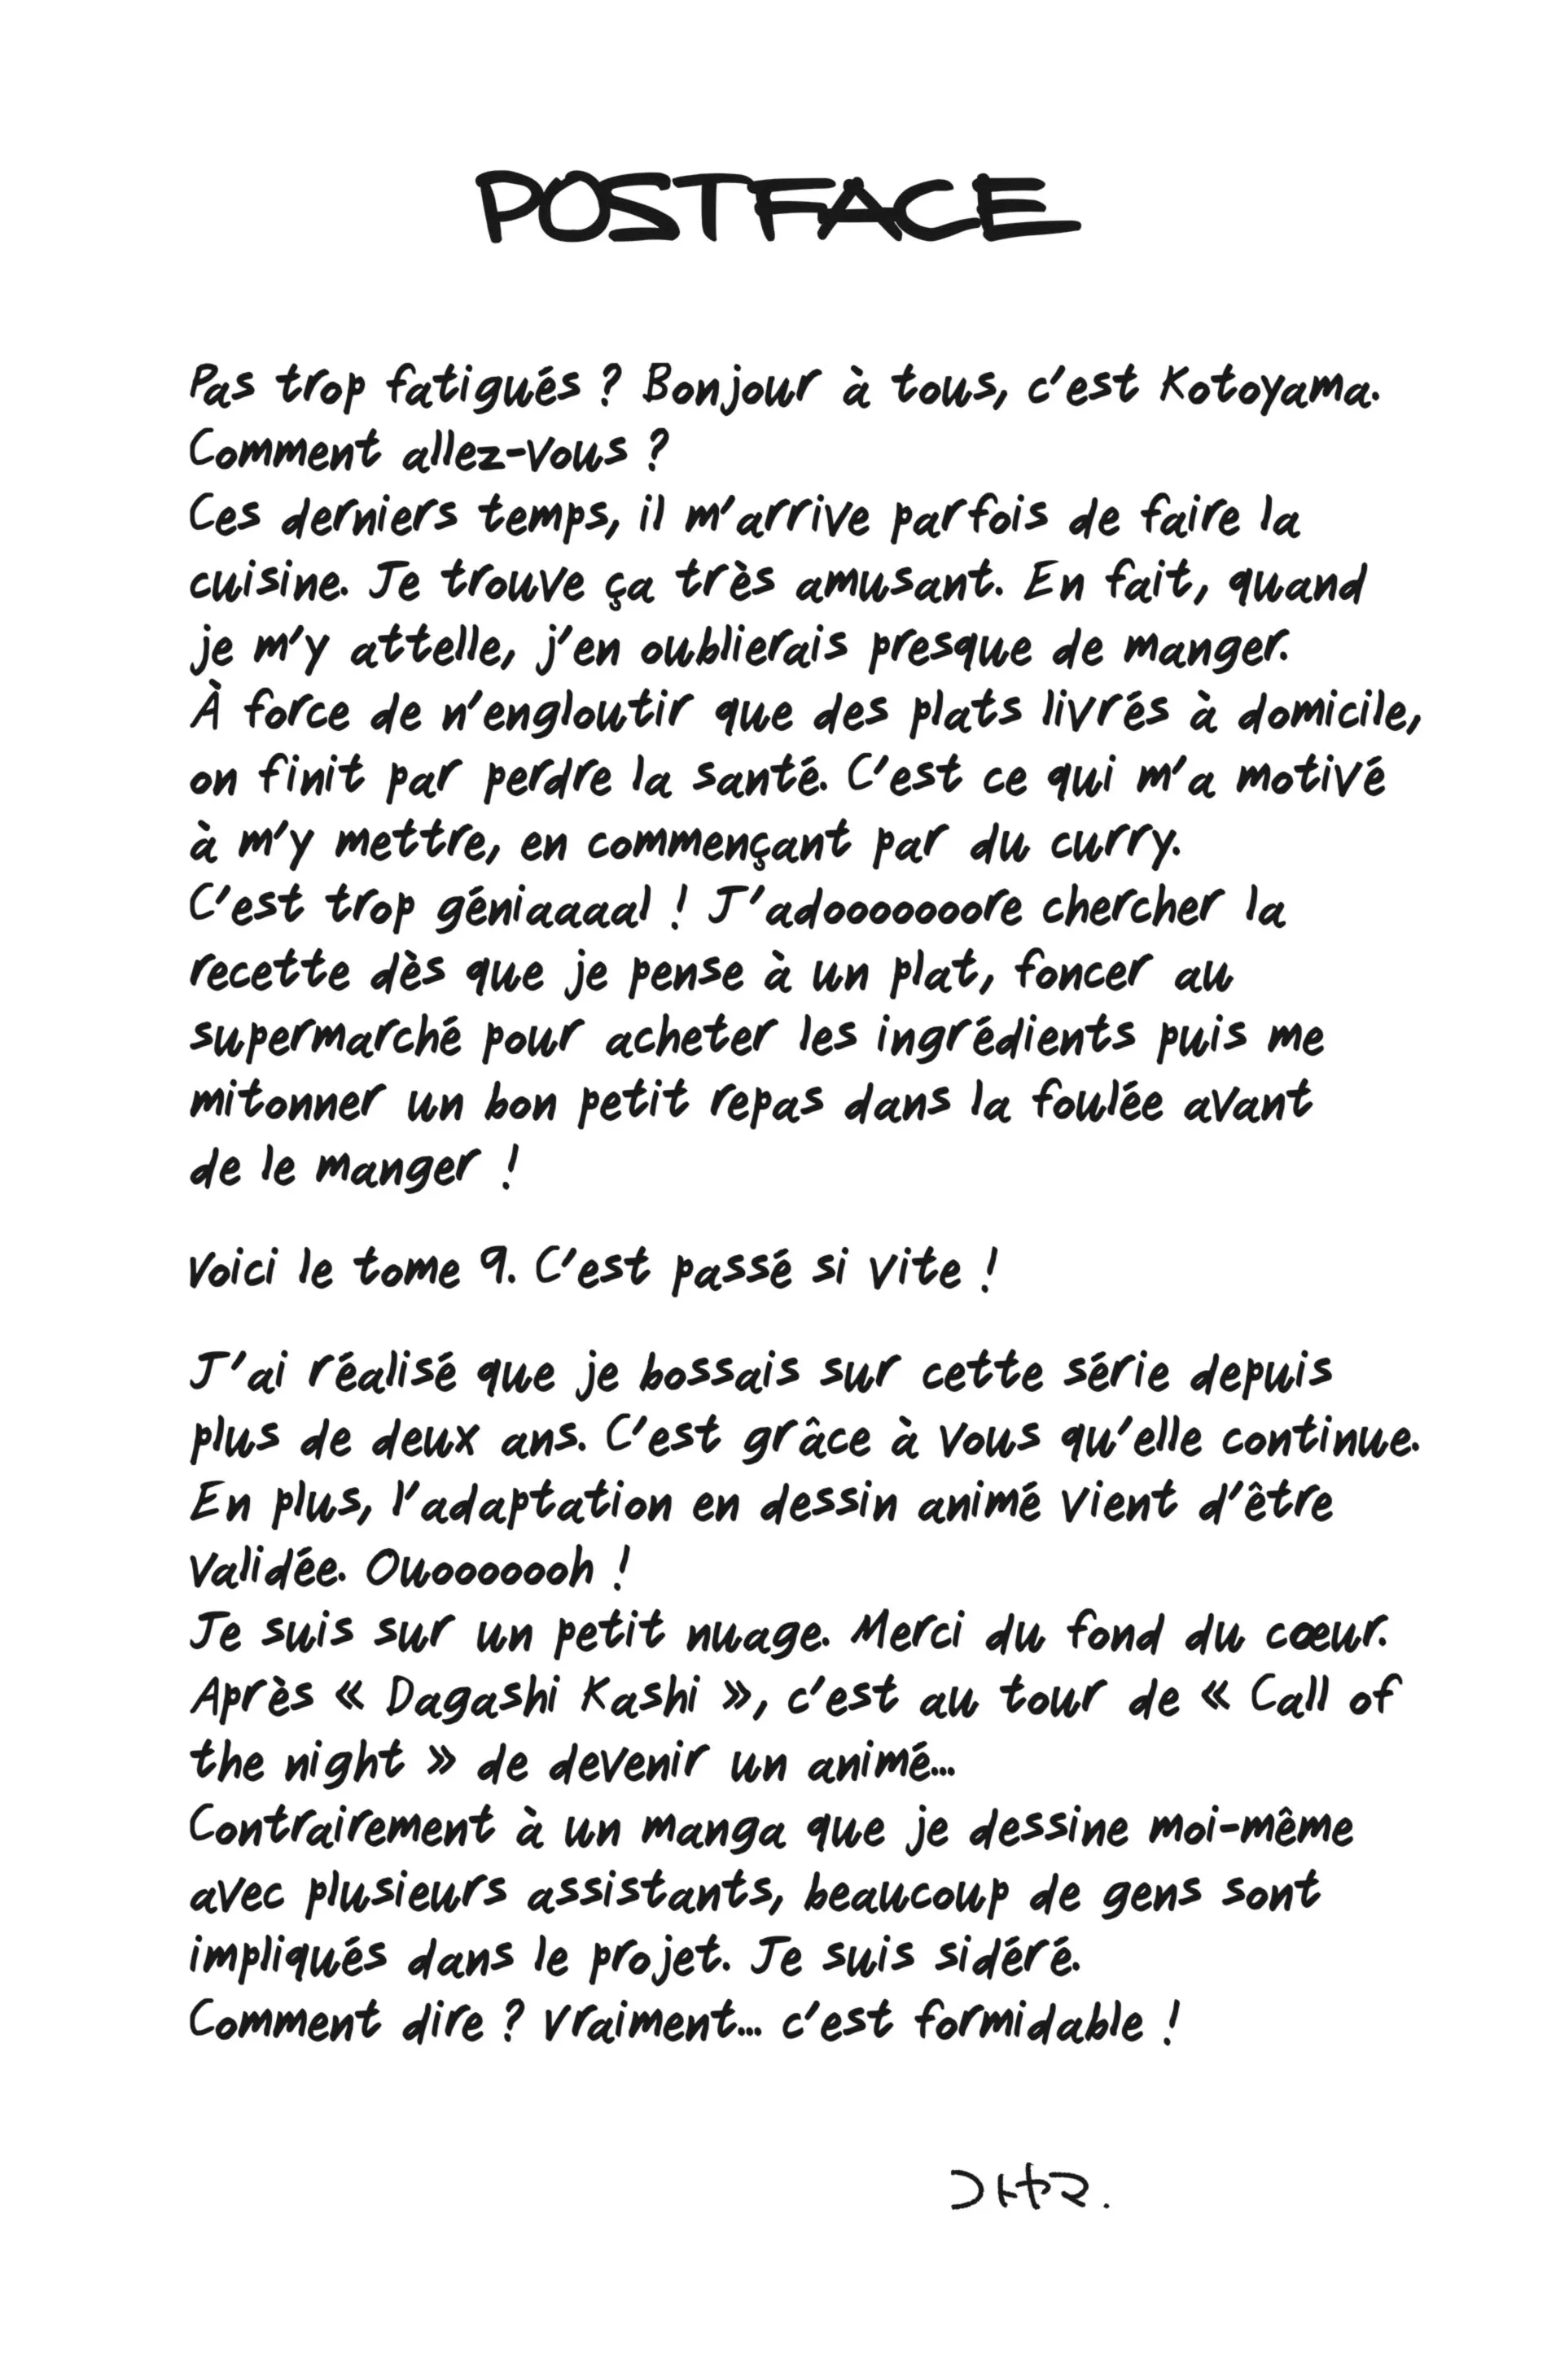 POSTFACE
Pas trop fatigués ? Bonjour à tous, c'est Kotoyama.
Comment allez-vous ?
Ces derniers temps, il m'arrive parfois de faire la
cuisine. Je trouve ça très amusant. En fait, quand
je m'y attelle, j'en oublierais presque de manger.
À force de n'engloutir que des plats livrés à domicile,
on finit par perdre la santé. C'est ce qui m'a motivé
à m'y mettre, en commençant par du curry.
C'est trop géniaaaal ! J'adooooooore chercher la
recette dès que je pense à un plat, foncer au
supermarché pour acheter les ingrédients puis me
mitonner un bon petit repas dans la foulée avant
de le manger !
Voici le tome 9. C'est passé si vite !
J'ai réalisé que je bossais sur cette série depuis
plus de deux ans. C'est grâce à vous qu'elle continue.
En plus, l'adaptation en dessin animé vient d'être
validée. Ouooooooh !
Je suis sur un petit nuage. Merci du fond du cœur.
Après « Dagashi Kashi », c'est au tour de « Call of
the night » de devenir un animé...
Contrairement à un manga que je dessine moi-même
avec plusieurs assistants, beaucoup de gens sont
impliqués dans le projet. Je suis sidéré.
Comment dire ? Vraiment... c'est formidable !
コトヤマ.